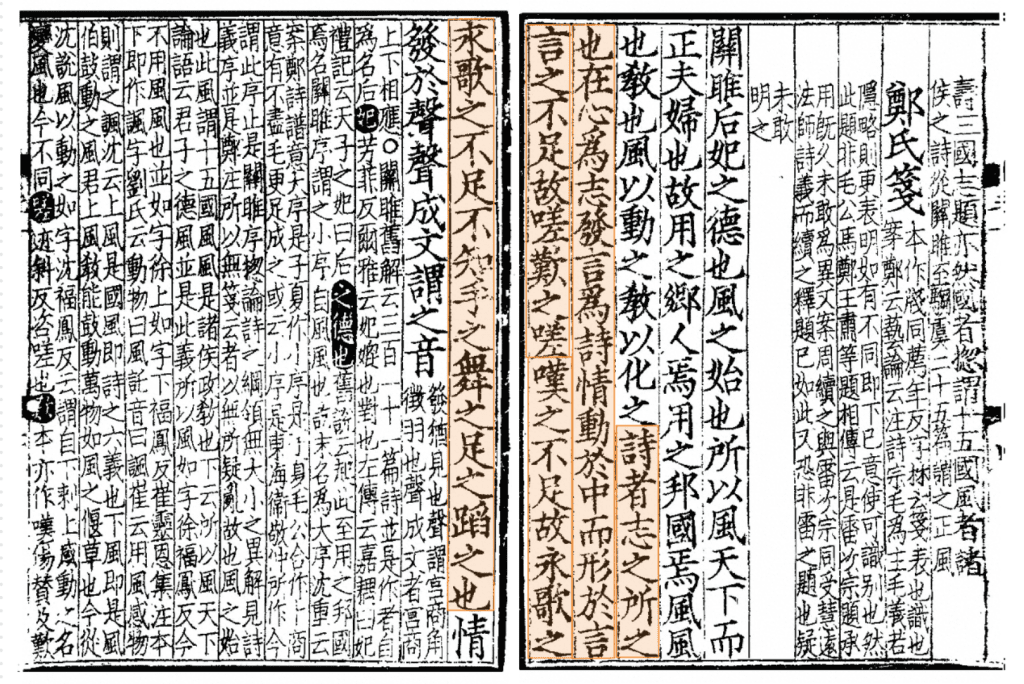 壽三國志題亦然國者惣謂十五國風者諸
侯之詩從關雎至騶虞二十五篇謂之正風
鄭氏箋
本亦作牋同薦年反字林云箋表也識也
案鄭六藝論云注詩宗毛為主毛義若
隱略則更表明如有不同即下己意使可識別也然
此題非毛公馬鄭王肅等題相傳云是雷次宗題承
用既久未敢為異又案周續之與雷次宗同受慧遠
法師詩義而續之釋題已如此又恐非雷之題也疑
未敢
明之
關雎后妃之德也風之始也所以風天下而
正夫婦也故用之鄉人焉用之邦國焉風風
也教也風以動之教以化之詩者志之所之
也在心為志發言為詩情動於中而形於言
言之不足故嗟歎之嗟嘆之不足故永歌之
永歌之不足不知手之舞之足之蹈之也情
發於聲聲成文謂之音
發猶見也聲謂宮商角
徵羽也聲成文者宮商
上下相應○關雎舊解云三百一十一篇詩並是作者自
為名后妃芳菲反爾雅云妃媲也對也左傳云嘉耦曰妃
禮記云天子之妃曰后之德也舊說云起此至用之邦國
焉名關雎序謂之小序自風風也訖末名為大序沈重云
案鄭詩譜意大序是子夏作小序是子夏毛公合作卜商
意有不盡毛更足成之或云小序是東海衛敬仲所作今
謂此序止是關雎序緫論詩之綱領無大小之異解見詩
義序並是鄭注所以無箋云者以無所疑亂故也風之始
也此風謂十五國風風是諸侯政教也下云所以風天下
論語云君子之德風並是此義所以風如字徐福鳳反今
不用風風也並如字徐上如字下福鳳反崔靈恩集注本
下即作諷字劉氏云動物曰風託音曰諷崔云用風感物
則謂之諷沈云上風是國風即詩之六義也下風即是風
伯鼓動之風君上風教能鼓動萬物如風之偃草也今從
沈說風以動之如字沈福鳳反云謂自下刺上感動之名
變風也今不同嗟迹斜反咨嗟也歎本亦作嘆湯贊反歎